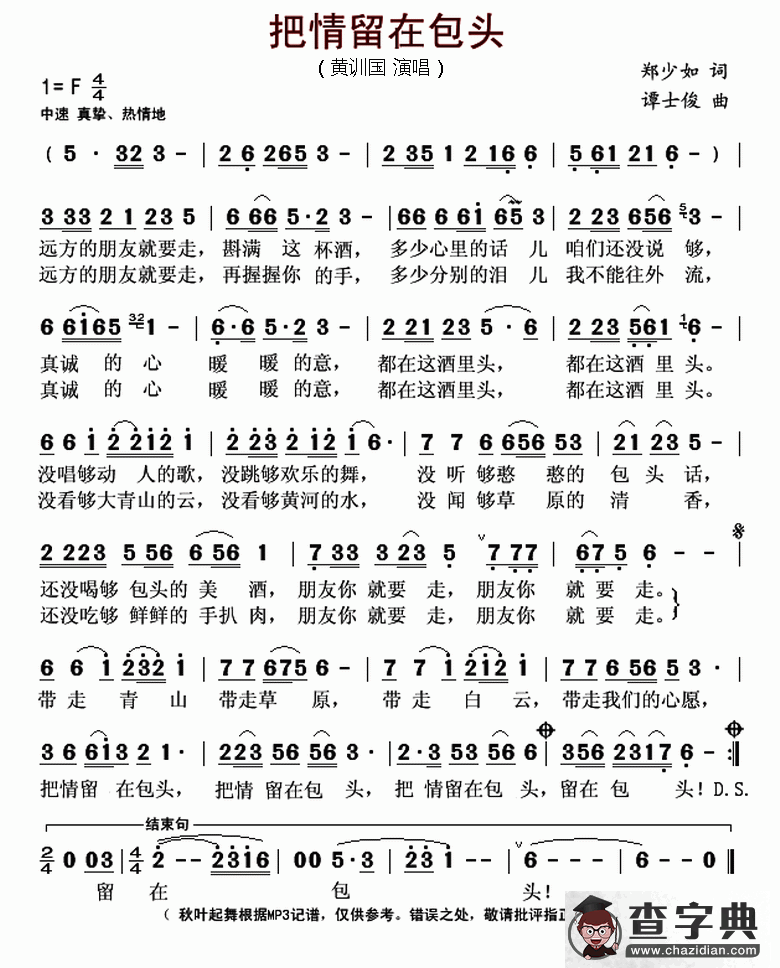 把情留在包头
（黄训国 演唱）
郑少如 词
1= F 4/4
谭士俊 曲
中速 真挚、热情地
( 5 · 32 3 - | 2 6 265 3 - | 2 35 1 2 16 6 | 5 61 21 6 - ) |
3 33 2 1 23 5 | 6 66 5·2 3 - | 66 6 61 65 3 | 2 23 656 5 3 - |
远方的朋友就要走，斟满 这 杯酒，多少心里的话 儿 咱们还没说 够，
远方的朋友就要走，再握握你 的手，多少分别的泪 儿 我不能往外 流，
6 6165 32 1 - | 6·6 5·2 3 - | 2 21 23 5·6 | 2 23 561 1 6 - |
真诚 的 心 暖 暖 的意， 都在这酒里头， 都在这酒 里 头。
真诚 的 心 暖 暖 的意， 都在这酒里头， 都在这酒 里 头。
6 6 1 2 212 1 | 2 23 2 12 1 6· | 7 7 6 656 53 | 21 23 5 - |
没唱够动 人的歌，没跳够欢乐的舞， 没 听 够憨 憨的 包 头 话，
没看够大青山的云，没看够黄河的水， 没 闻 够草 原的 清 香，
2 223 5 56 656 1 | 7 33 3 23 5 | 7 77 7 | 67 5 6 - - |
还没喝够 包头的 美 酒，朋友你 就要 走，朋友你 就 要 走。
还没吃够 鲜鲜的 手扒 肉，朋友你 就要 走，朋友你 就 要 走。
6 6 1 232 1 | 7 7 675 6 - | 7 7 1 212 1 | 77 6 56 5 3 · |
带 走 青 山 带走草 原， 带 走 白 云，带走我们的心愿，
3 6 613 2 1· | 223 56 56 3· | 2·3 53 56 6 | 356 2317 6 - :||
把情留 在包头，把情 留在包 头，把 情留在包 头，留在 包 头！D.S.
结束句
2/4 0 03 | 4/4 2 - - 2316 | 00 5·3 | 2 23 1 - | 6 - - - | 6 - - 0 ||
留 在 包 头！
（ 秋叶起舞根据MP3记谱，仅供参考。错误之处，敬请批评指正
查字典
www.chazidian.com